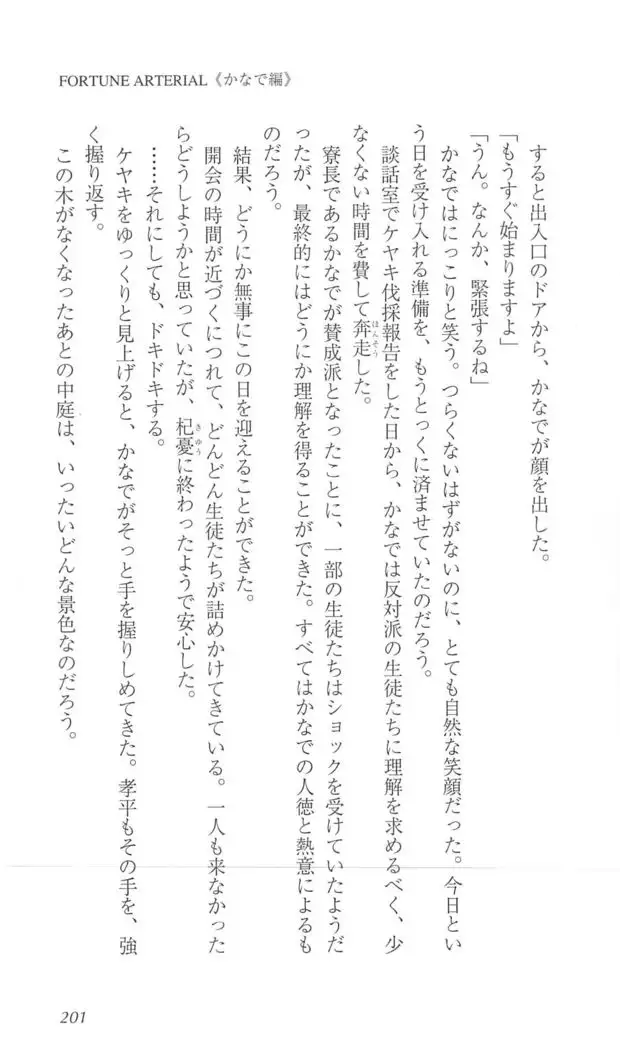 FORTUNE ARTERIAL《かなで編》
すると出入口のドアから、かなでが顔を出した。
「もうすぐ始まりますよ」
「うん。なんか、緊張するね」
かなではにっこりと笑う。つらくないはずがないのに、とても自然な笑顔だった。今日とい
う日を受け入れる準備を、もうとっくに済ませていたのだろう。
談話室でケヤキ伐採報告をした日から、かなでは反対派の生徒たちに理解を求めるべく、少
なくない時間を費して奔走した。
ほんそう
寮長であるかなでが賛成派となったことに、一部の生徒たちはショックを受けていたようだ
ったが、最終的にはどうにか理解を得ることができた。すべてはかなでの人徳と熱意によるも
のだろう。
結果、どうにか無事にこの日を迎えることができた。
開会の時間が近づくにつれて、どんどん生徒たちが詰めかけてきている。一人も来なかった
らどうしようかと思っていたが、杞憂に終わったようで安心した。
きゆう
……それにしても、ドキドキする。
ケヤキをゆっくりと見上げると、かなでがそっと手を握りしめてきた。孝平もその手を、強
く握り返す。
この木がなくなったあとの中庭は、いったいどんな景色なのだろう。
201